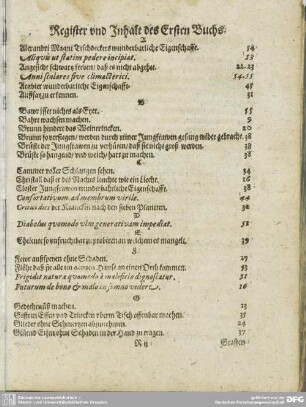 Register vnd Inhalt des Ersten Buchs.
A
Alexandri Magni Tischdeckers wunderbarliche Eigenschafft. 54
Aliquis ut statim pedere incipiat. 13
Angesicht schwarz ferben / daß es nicht abgehet. 22.23
Anni scolares sive climacterici. 54.55
Arabier wunderbarliche Eigenschafft. 45
Aussatz zu erkennen. 31
B
Bawr isset nüches als Eyer. 55
Bahrt wachsen machen. 9
Brunn hindert das Weinerincken. 20
Brunn so versogen / werden durch reiner Jungfrawen gesang wider gebracht. 38
Brüste der Jungfrawen zu verhüten / daß sie nicht groß werden. 28
Brüste so hangend vnd weich / hart zu machen. 38
C
Cammer voller Schlangen sehen. 34
Christall daß er des Nachts leuchte wie ein Liecht. 16
Closter Jungfrawen wunderbahrliche Eigenschafft. 38
Confortativum ad membrum virile. 44
Critici dies der Krancken nach den sieben Planeten. 30
D
Diabolus quomodo vim generativam impediat. 51
E
Eheleute so vnfruchtbar / zu probieren an welchem es mangelt. 39
F
Fewr außspeyen ohne Schaden. 27
Flöhe daß sie alle im gantzen Hause an einen Orth kommen. 53
Frigidus natura quomodo à maleficio dignoscatur. 51
Futurum de bono & malo in somno videre. 16
G
Gedechtnuß machen. 13
Gifft in Essen vnd Trincken vberm Tisch offenbar machen. 35
Glieder ohne Schmertzen abzunehmen. 24
Glüend Eisen ohne Schaden in der Hand zu tragen. 37
R ij
Grossen